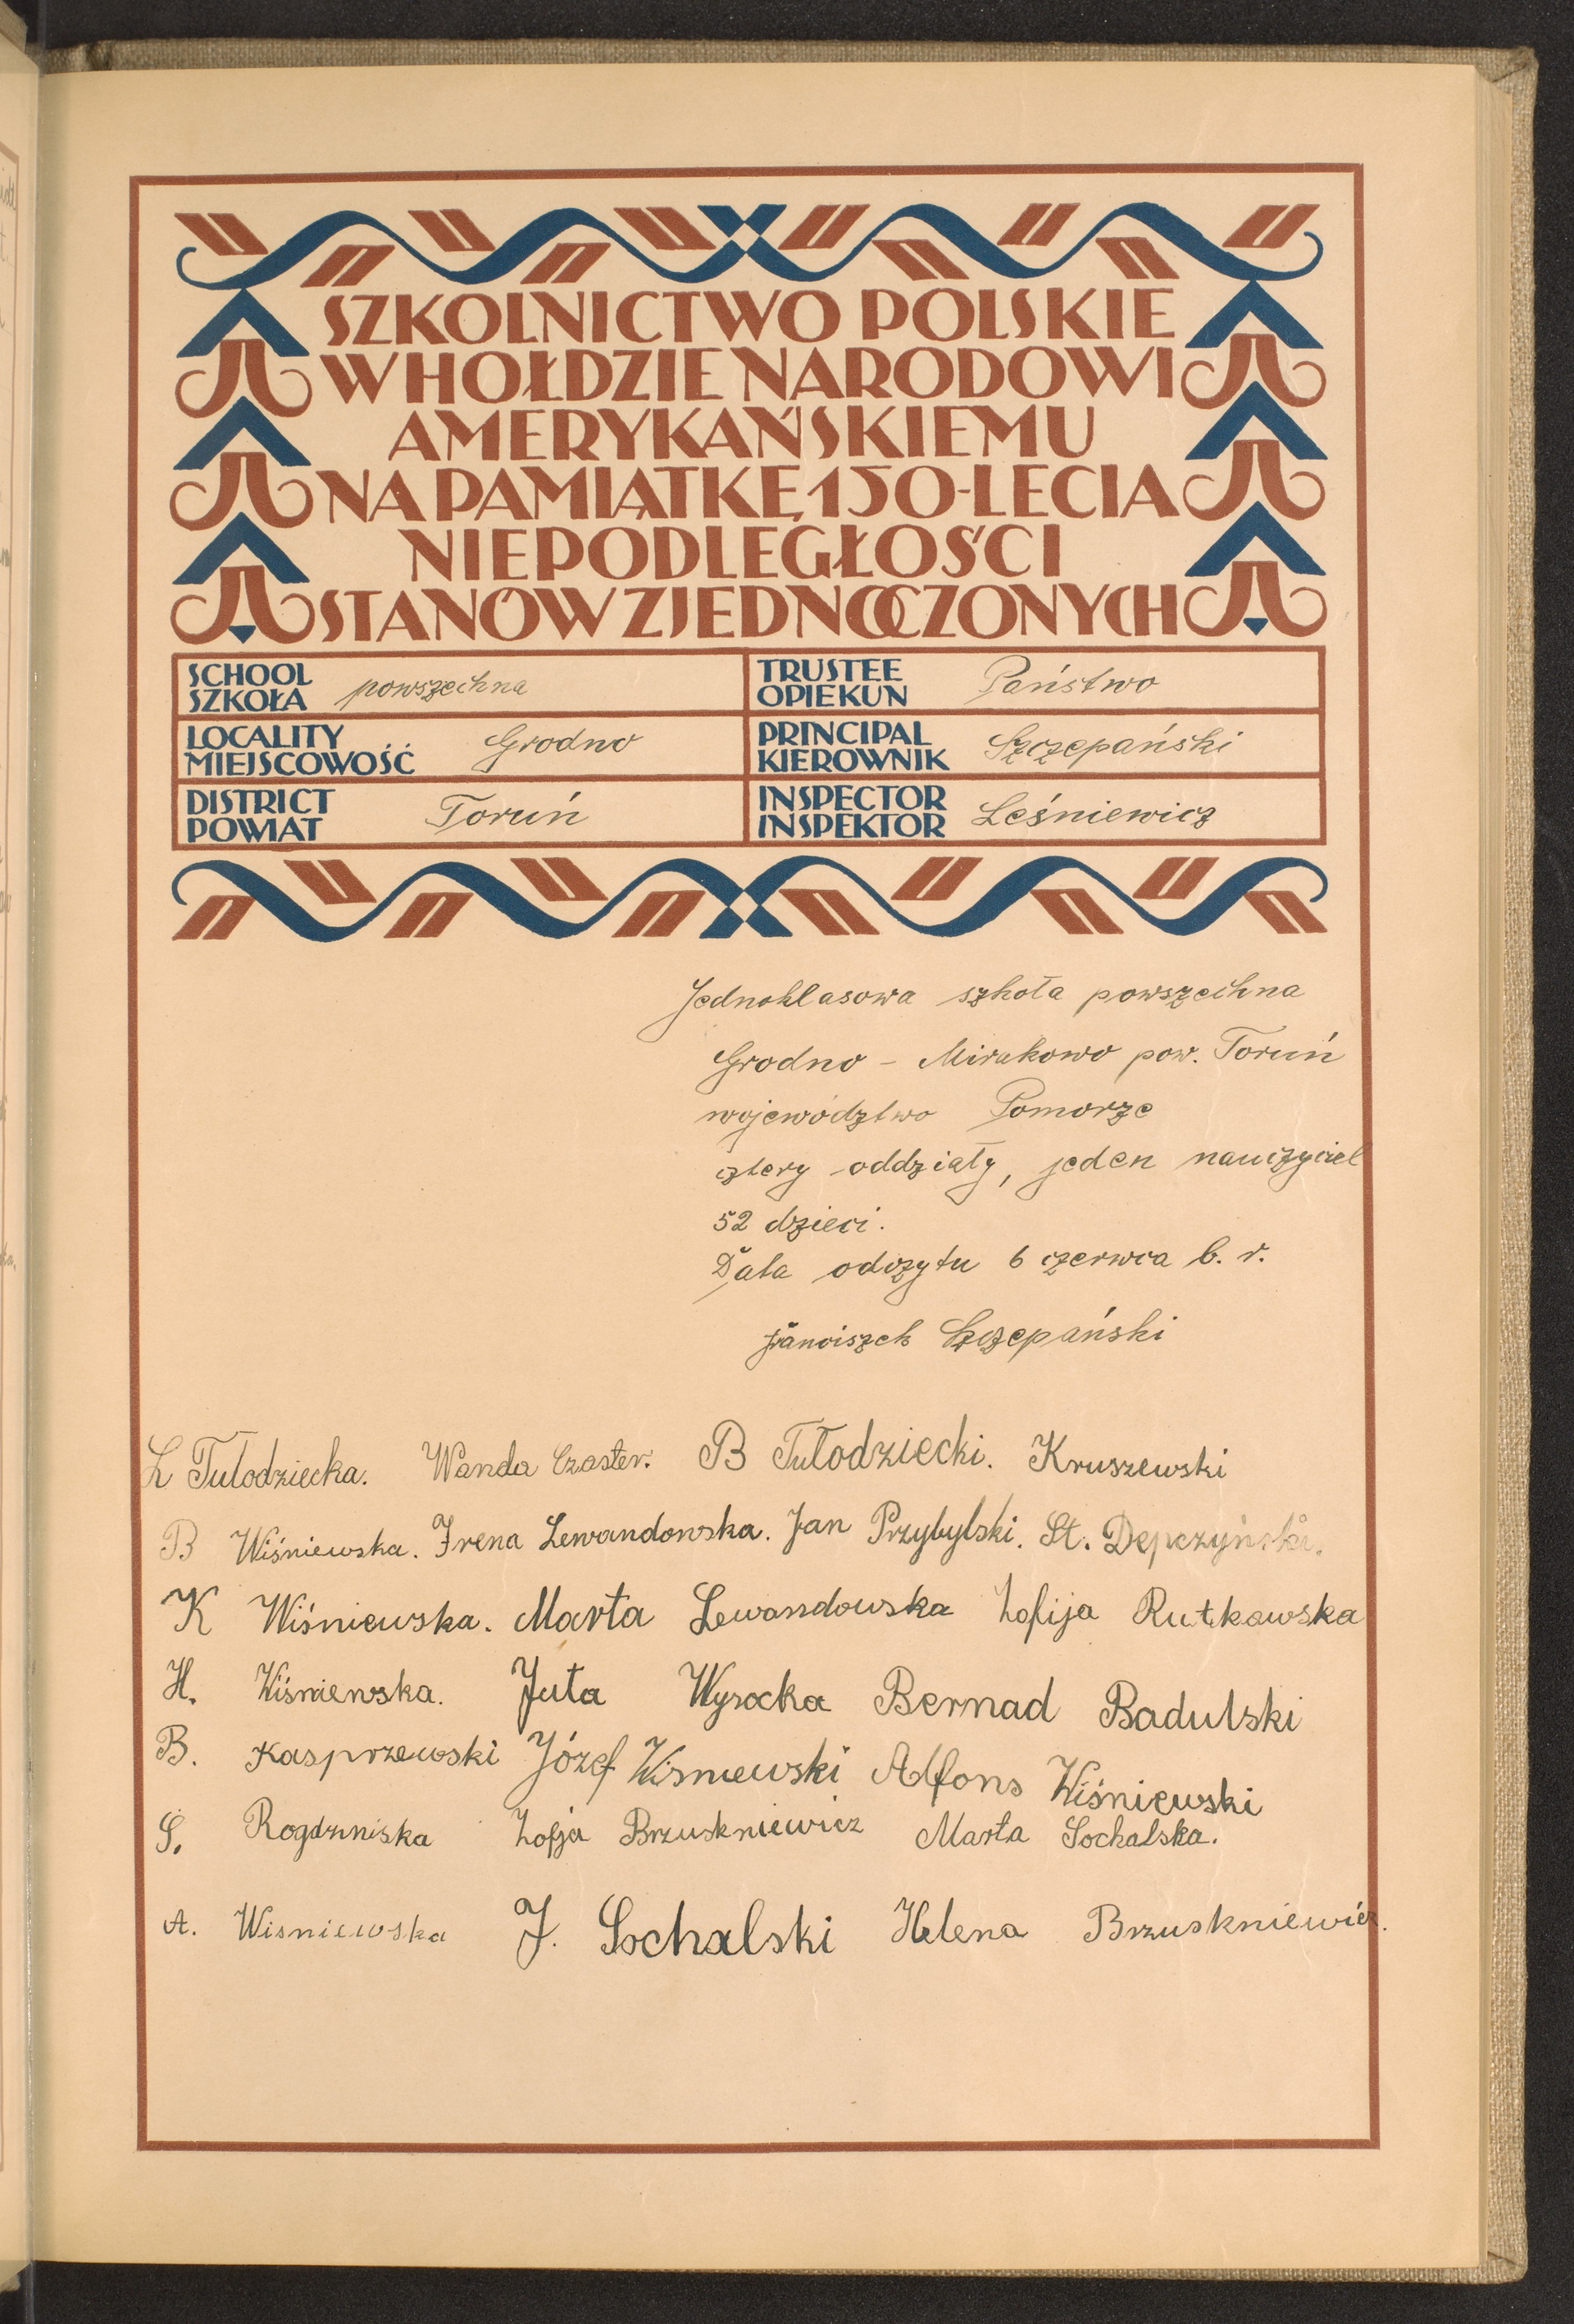 SZKOLNICTWO POLSKIE
W HOŁDZIE NARODOWI
AMERYKAŃSKIEMU
NA PAMIĄTKĘ 150-LECIA
NIEPODLEGŁOŚCI
STANÓW ZJEDNOCZONYCH
SCHOOL
SZKOŁA powszechna
TRUSTEE
OPIEKUN Państwo
LOCALITY
MIEJSCOWOŚĆ Grodno
PRINCIPAL
KIEROWNIK Szczepański
DISTRICT
POWIAT Toruń
INSPECTOR
INSPEKTOR Leśniewicz
Jednoklasowa szkoła powszechna
Grodno - Mirakowo pow. Toruń
województwo Pomorze
cztery oddziały, jeden nauczyciel
52 dzieci.
Data odczytu 6 czerwca b. r.
Franciszek Szczepański
Ł Tułodziecka. Wanda Czaster. B Tułodziecki. Kruszewski
B Wiśniewska. Irena Lewandowska. Jan Przybylski. St. Depczyński.
K Wiśniewska. Marta Lewandowska Zofija Rutkawska
H. Wiśniewska. Juta Wysocka Bernad Badulski
B. Kasprzewski Józef Wiśniewski Alfons Wiśniewski
S. Rogdzniska Zofja Brzuskniewicz Marta Sochalska.
A. Wisniewska J. Sochalski Helena Brzuskniewicz.